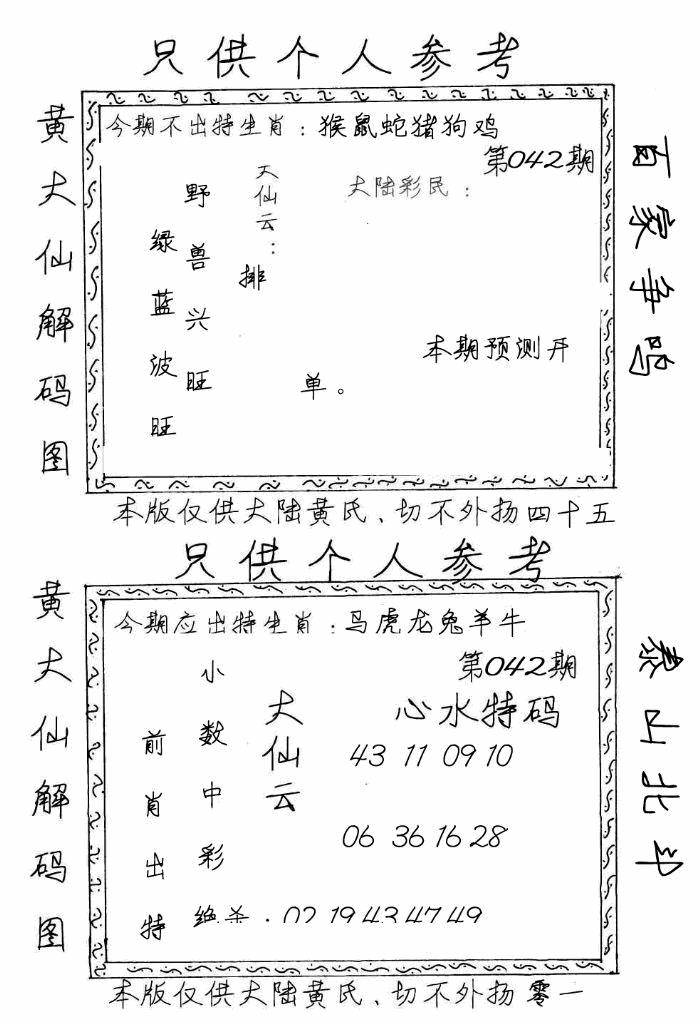 只供个人参考
黄大仙解码图
今期不出特生肖：猴鼠蛇猪狗鸡
第042期
大仙云：
大陆彩民：
野兽兴旺
绿蓝波旺
排
本期预测开
单。
百家争鸣
本版仅供大陆黄氏、切不外扬四十五
只供个人参考
黄大仙解码图
今期应出特生肖：马虎龙兔羊牛
第042期
心水特码
大仙云
小数中彩
前肖出特
43 11 09 10
06 36 16 28
绝杀：02 19 43 47 49
泰山北斗
本版仅供大陆黄氏、切不外扬零一